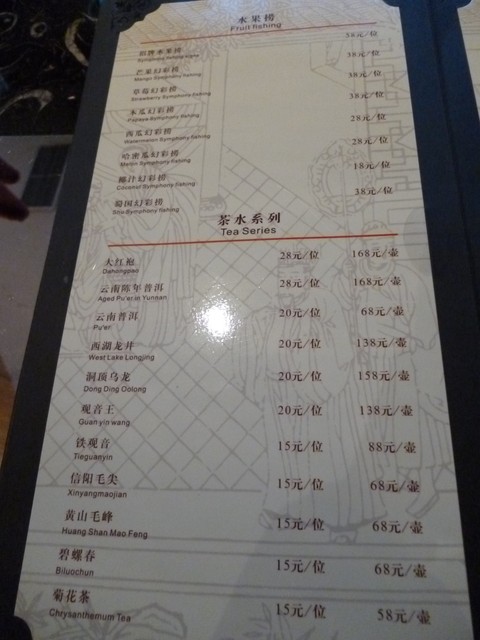 水果捞
Fruit fishing
38元/位
水果捞
Symphony fishing
38元/位
芒果幻彩捞
Mango Symphony fishing
38元/位
草莓幻彩捞
Strawberry Symphony fishing
38元/位
木瓜幻彩捞
Papaya Symphony fishing
28元/位
西瓜幻彩捞
Watermelon Symphony fishing
28元/位
哈密瓜幻彩捞
Melon Symphony fishing
18元/位
椰汁幻彩捞
Coconut Symphony fishing
38元/位
蜀国幻彩捞
Shu Symphony fishing
茶水系列
Tea Series
大红袍 28元/位 168元/壶
Dahongpao
云南陈年普洱 28元/位 168元/壶
Aged Pu'er in Yunnan
云南普洱 20元/位 68元/壶
Pu'er
西湖龙井 20元/位 138元/壶
West Lake Longjing
洞顶乌龙 20元/位 158元/壶
Dong Ding Oolong
观音王 20元/位 138元/壶
Guan yin wang
铁观音 15元/位 88元/壶
Tieguanyin
信阳毛尖 15元/位 68元/壶
Xinyangmaojian
黄山毛峰 15元/位 68元/壶
Huang Shan Mao Feng
碧螺春 15元/位 68元/壶
Biluochun
菊花茶 15元/位 58元/壶
Chrysanthemum Tea